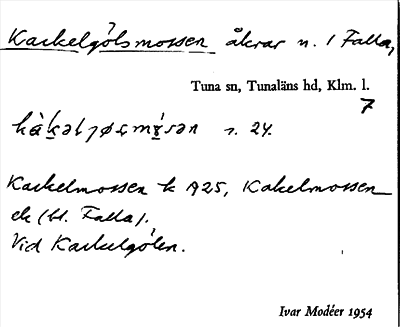 Kackelgölsmossen åkrar n. 1 Falla,
Tuna sn, Tunaläns hd, Klm. l.
7
r. 24.
Kackelmossen k A25, Kakelmossen
ek (bl. Falla).
Vid Kackelgölen.
Ivar Modéer 1954